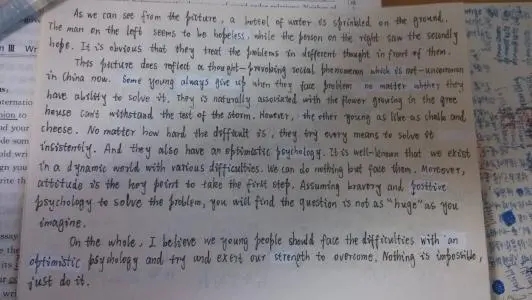 As we can see from the picture, a bottel of water is sprinkled on the ground.
The man on the left seems to be hopeless, while the person on the right saw the secondly
hope. It is obvious that they treat the problems in different thought in front of them.
This picture does reflect a thought-provoking social phenomenon which is not-uncommon
in China now. Some young always give up when they face problem no matter whther they
have ability to solve it. They is naturally associated with the flower growing in the gree
house can't withstand the test of the storm. However, the other young as like as chalk and
cheese. No matter how hard the difficult is, they try every means to solve it
insistently. And they also have an optimistic psychology. It is well-known that we exist
in a dynamic world with various difficulties. We can do nothing but face them. Moreover,
attitude is the key point to take the first step. Assuming bravery and positive
psychology to solve the problem, you will find the question is not as "huge" as you
imagine.
On the whole, I believe we young people should face the difficulties with an
optimistic psychology and try and exert our strength to overcome. Nothing is impossible,
just do it.